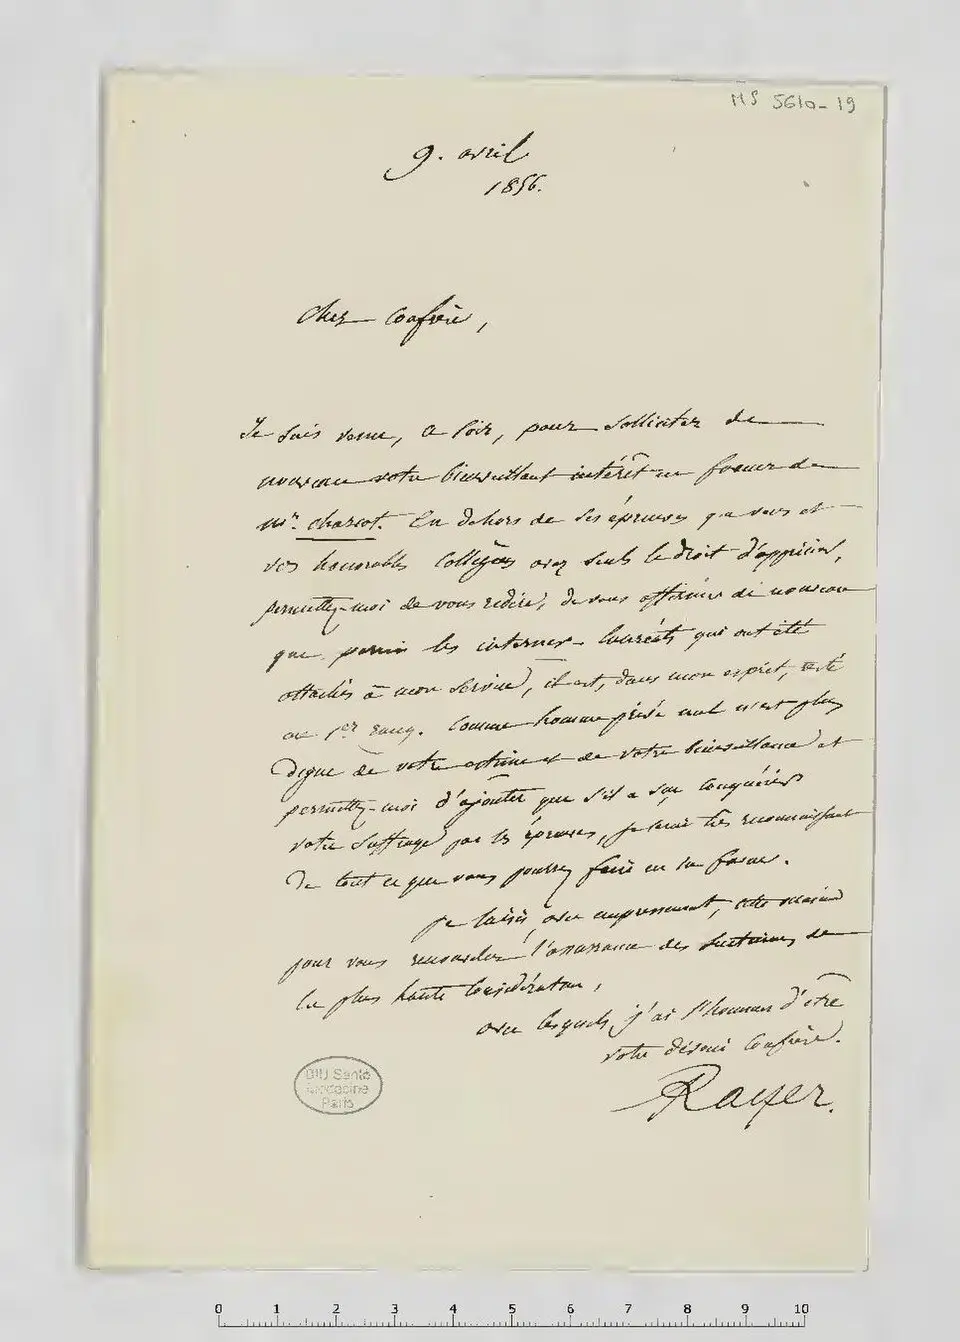 MS 5610-19
9. avril
1856.
Cher Confrère,
Je suis venu, ce soir, pour solliciter de
nouveau votre bienveillant intérêt en faveur de
Mr. Charcot. En dehors de ses épreuves que vous et
vos honorables Collègues avez seuls le droit d'apprécier,
permettez-moi de vous redire, de vous affirmer de nouveau
que parmi les internes-lauréats qui ont été
attachés à mon service, il est, dans mon esprit, resté
au 1er rang. Comme homme privé nul n'est plus
digne de votre estime et de votre bienveillance et
permettez-moi d'ajouter que s'il a su conquérir
votre suffrage par les épreuves, je serai très reconnaissant
de tout ce que vous pourrez faire en sa faveur.
Je saisis, avec empressement, cette occasion
pour vous renouveler l'assurance des sentimens de
la plus haute considération,
avec lesquels j'ai l'honneur d'être
votre dévoué Confrère.
Rayer.
BIU Santé
Médecine
Paris
0 1 2 3 4 5 6 7 8 9 10